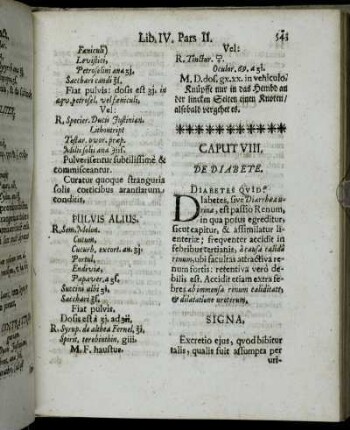 Lib. IV. Pars II.
Fæniculi)
Levistici,
Petroselini ana ʒj.
Sacchari candi ℥ſ.
Fiat pulvis: dosis est ʒj. in
aqv. petrosel. vel fæniculi.
Vel:
R. Specier. Ducis Justinian.
Lithontript
Testar. ovor. præp.
Milii solis ana
Pulverisentur subtilissimè &
commisceantur.
Curatur quoque stranguria
solis corticibus arantiarum,
conditis.
PULVIS ALIUS.
R. Sem. Melon.
Cucum.
Cucurb. excort. an. ʒj.
Portul.
Endiviæ,
Papaver. a ʒſ.
Succini albi
Sacchari ℥ſ.
Fiat pulvis.
Dosis est à ʒj. ad ʒij.
R. Syrup. de althea Fernel. ℥j.
Spirit. terebinthin. giii.
M. F. haustus.
Vel:
R. Tinctur.
Ocular.
M. D. dos. gt. xx. in vehiculo.
Knüpffe nur in das Hembd an
der lincken Seiten einen Knoten/
alsobald vergehet es.
CAPUT VIII.
DE DIABETE.
DIABETES QVID?
Diabetes, sive Diarrhœa u-
rinæ, est passio Renum,
in qua potus egreditur,
sicut capitur, & assimilatur li-
enteriæ; freqventer accidit in
febribus tertianis, à causa calidâ
renum, ubi facultas attractiva re-
num fortis: retentiva verò de-
bilis est. Accidit etiam extra fe-
bres ab immensa renum caliditate,
& dilatatione ureterum.
SIGNA.
Excretio ejus, qvod bibitur
talis, qualis fuit assumpta per
uri-